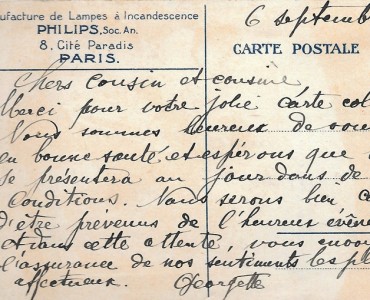 ufacture de Lampes à Incandescence
PHILIPS, Soc. An.
8, Cité Paradis
PARIS.
6 septemb
CARTE POSTALE
Chers cousin et cousine
Merci pour votre jolie carte col
Nous sommes heureux de vous
en bonne santé et espérons que
se présentera au jour dans de
Conditions. Nous serons bien
d'être prévenus de l'heureux évène
et dans cette attente, vous envoy
l'assurance de nos sentiments les pl
affectueux. Georgette